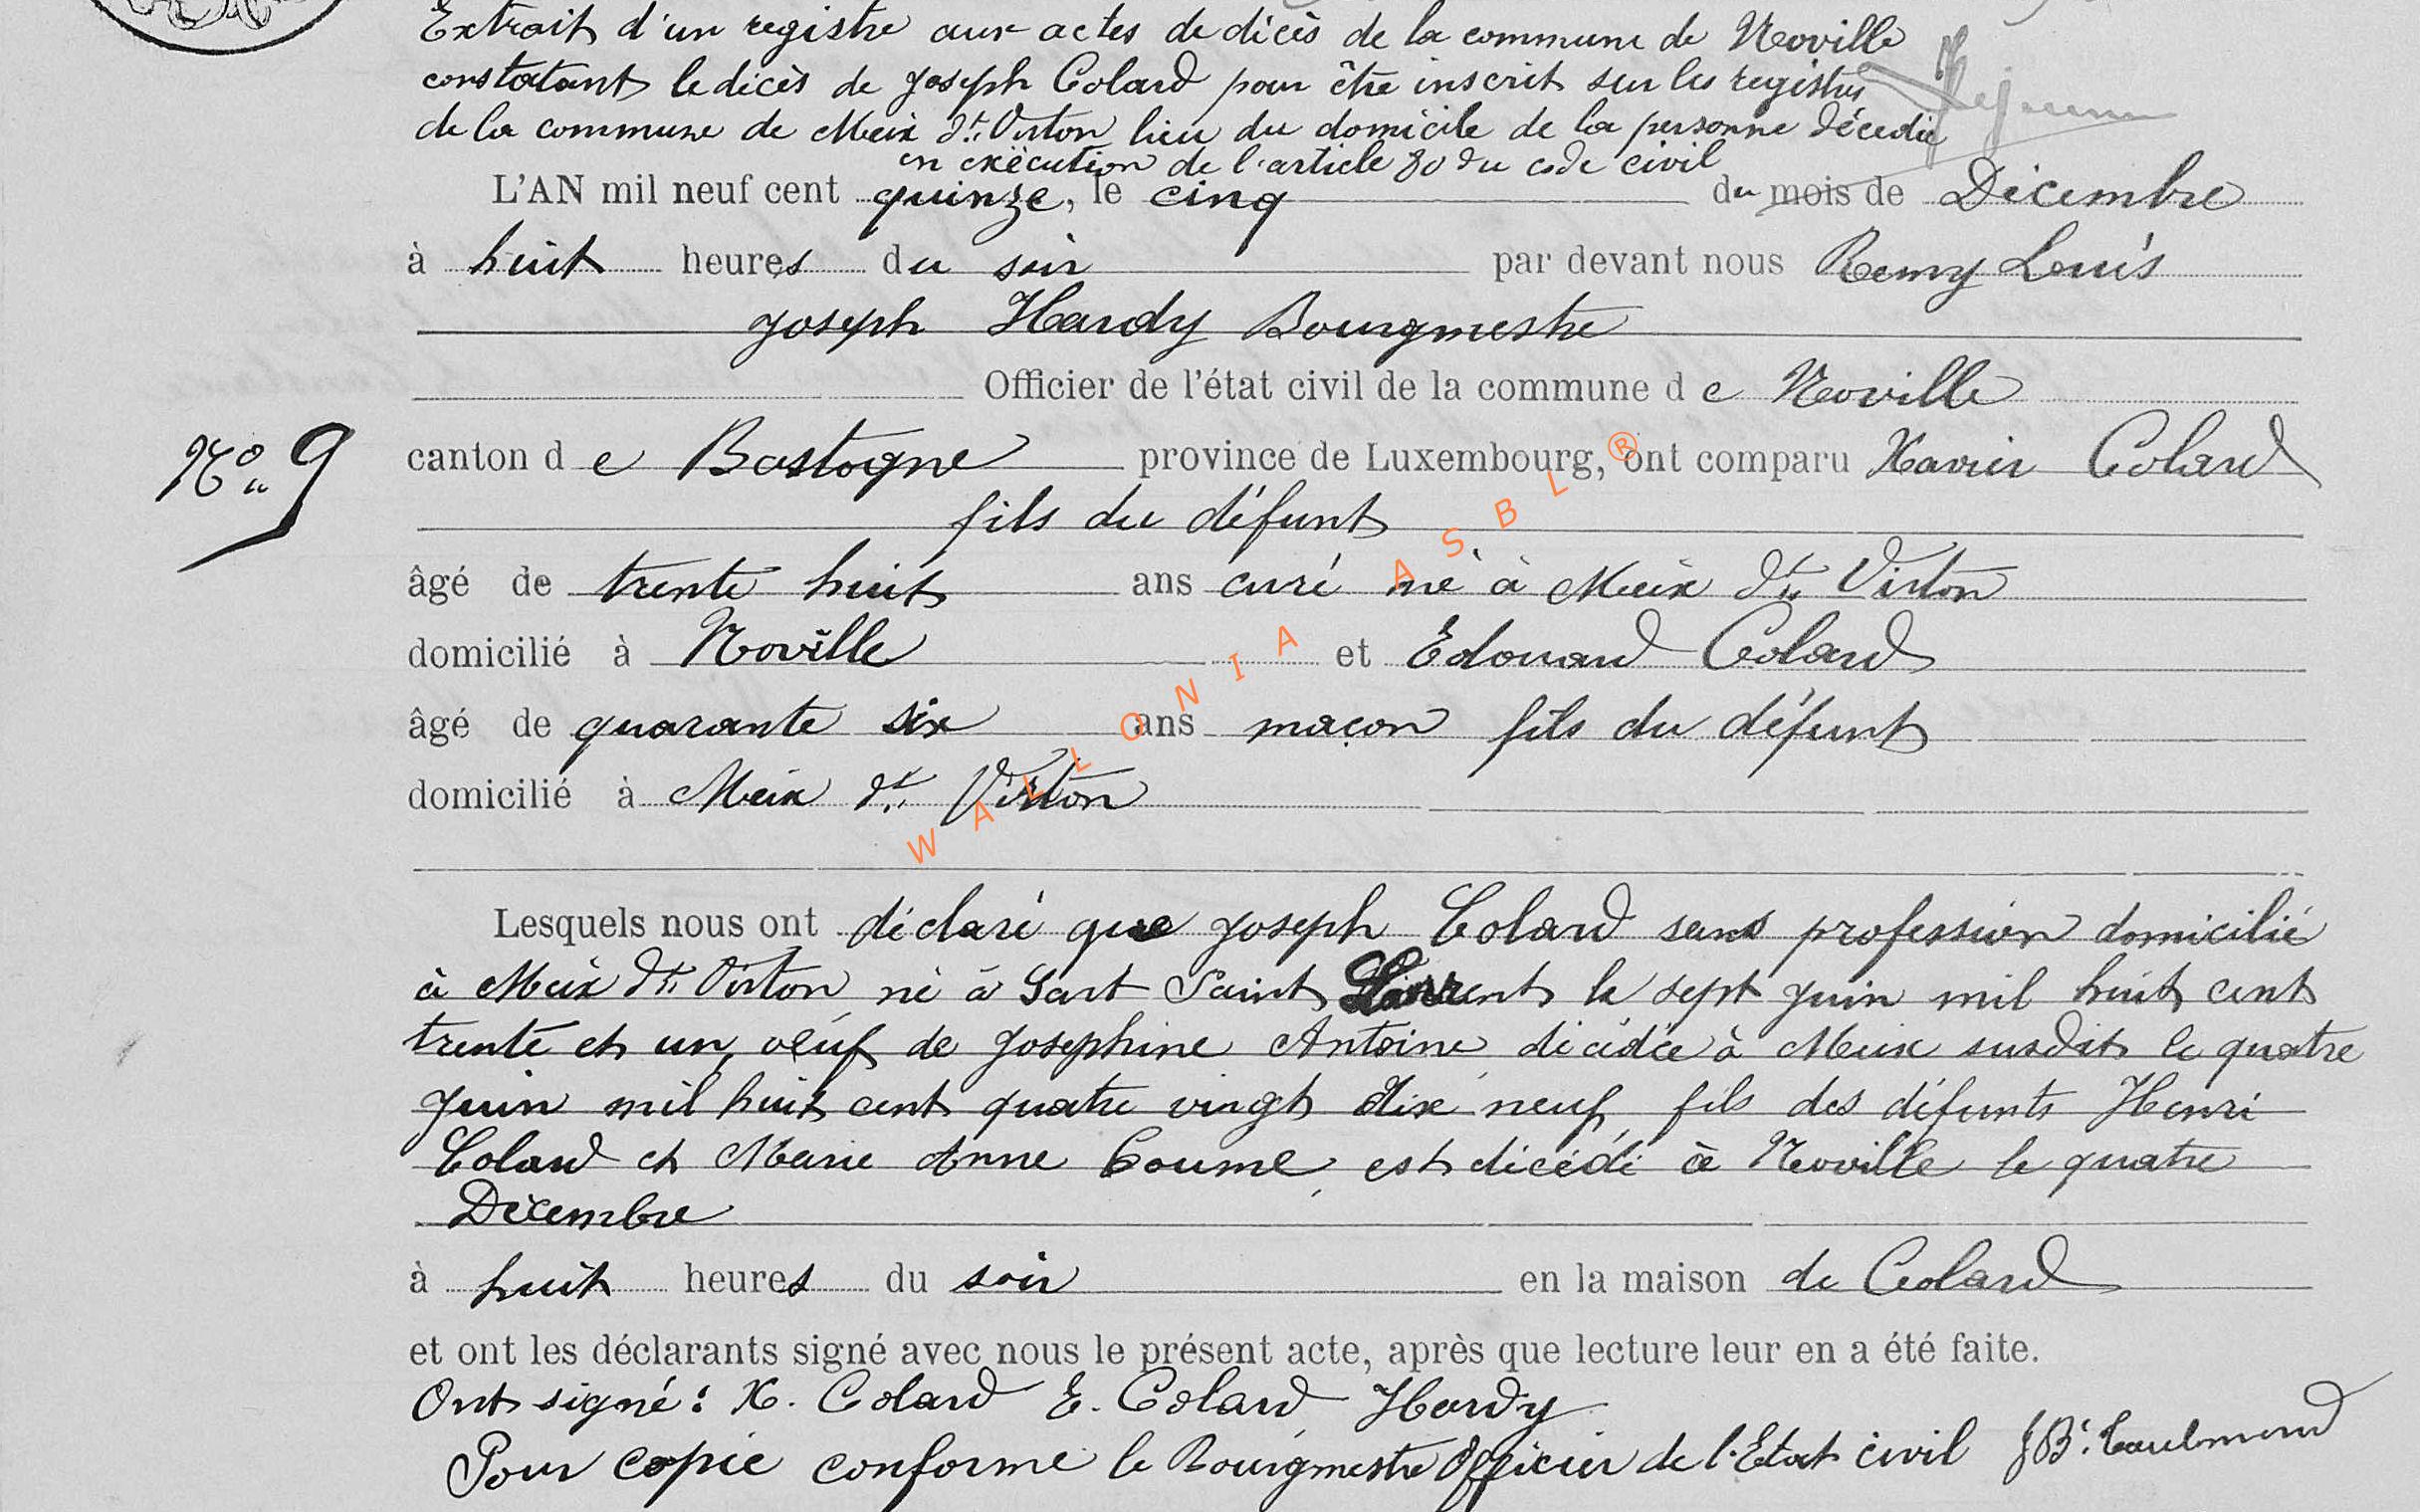 Extrait d'un registre aux actes de décès de la commune de Noville
constatant le décès de Joseph Colard pour être inscrit sur les registres
de la commune de Meix dt. Virton lieu du domicile de la personne décédée
en exécution de l'article 80 du code civil
L'AN mil neuf cent quinze, le cinq du mois de Décembre
à huit heures du soir par devant nous Remy Louis
Joseph Hardy Bourgmestre
Officier de l'état civil de la commune de Noville
No 9
canton de Bastogne province de Luxembourg, ont comparu Xavier Colard
fils du défunt
âgé de trente huit ans curé né à Meix dt. Virton
domicilié à Noville et Edouard Colard
âgé de quarante six ans maçon fils du défunt
domicilié à Meix dt. Virton
WALLONIA ASBL ®
Lesquels nous ont déclaré que Joseph Colard sans profession domicilié
à Meix dt. Virton né à Sart Saint Laurent le sept Juin mil huit cent
trente et un, veuf de Josephine Antoine décédée à Meix susdit le quatre
Juin mil huit cent quatre vingt dix neuf, fils des défunts Henri
Colard et Marie Anne Goume, est décédé à Noville le quatre
Décembre
à huit heures du soir en la maison de Colard
et ont les déclarants signé avec nous le présent acte, après que lecture leur en a été faite.
Ont signé : X. Colard E. Colard Hardy
Pour copie conforme le Bourgmestre Officier de l'Etat civil JBt.